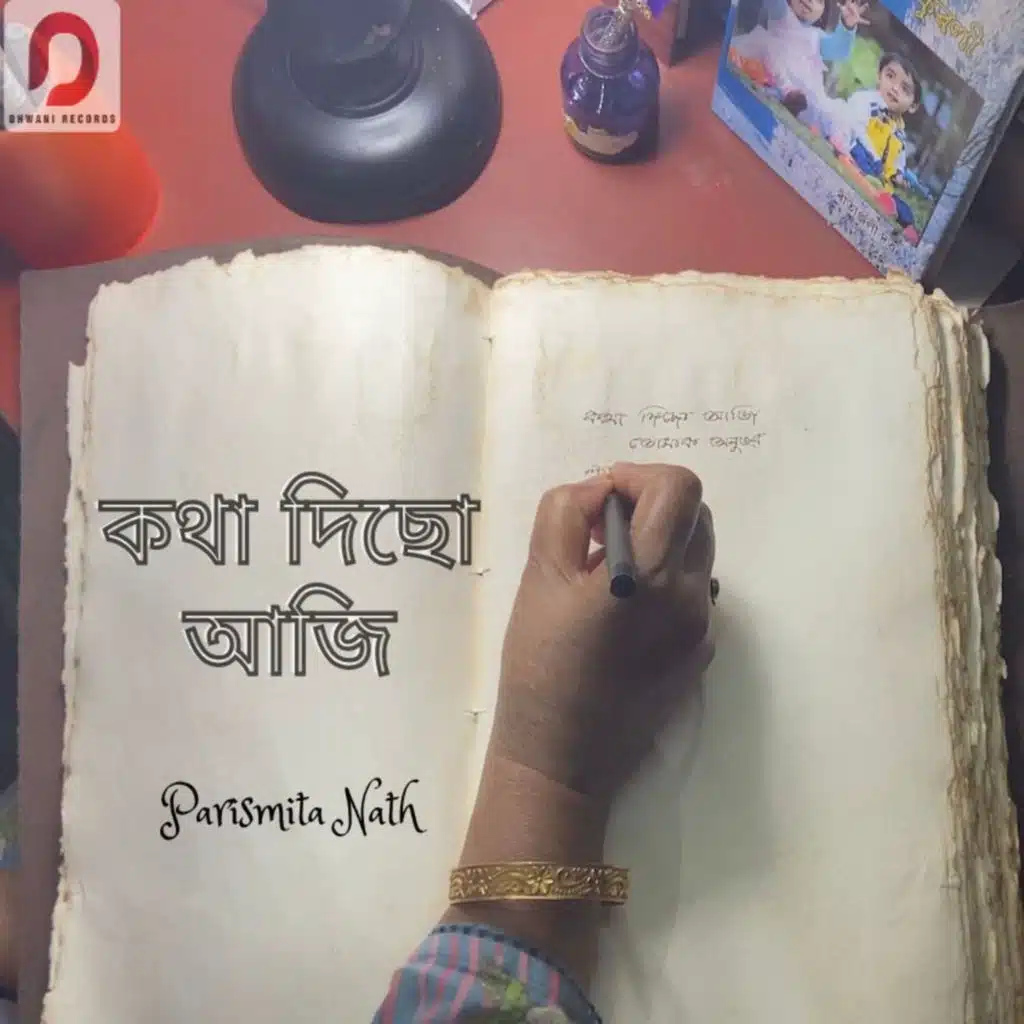 DHWANI RECORDS
কথা দিছো আজি
তোমাক
কথা দিছো
আজি
Parismita Nath